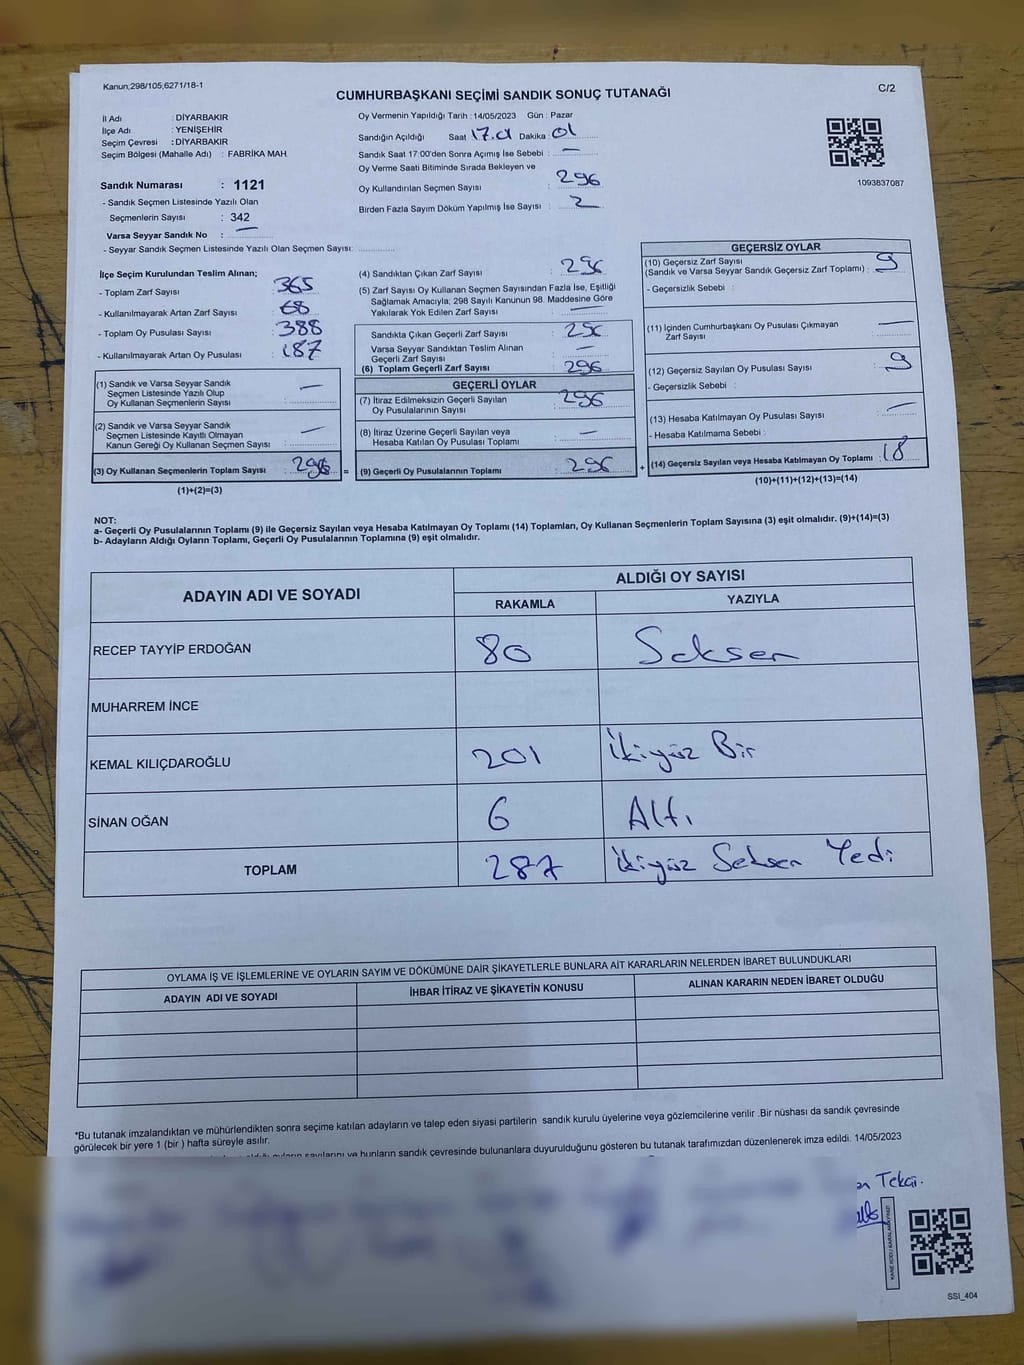 Kanun;298/105;6271/18-1
C/2
CUMHURBAŞKANI SEÇİMİ SANDIK SONUÇ TUTANAĞI
İl Adı : DİYARBAKIR
İlçe Adı : YENİŞEHİR
Seçim Çevresi : DİYARBAKIR
Seçim Bölgesi (Mahalle Adı) : FABRİKA MAH
Sandık Numarası : 1121
- Sandık Seçmen Listesinde Yazılı Olan
Seçmenlerin Sayısı : 342
Varsa Seyyar Sandık No : —
- Seyyar Sandık Seçmen Listesinde Yazılı Olan Seçmen Sayısı:
Oy Vermenin Yapıldığı Tarih : 14/05/2023 Gün : Pazar
Sandığın Açıldığı Saat 17.01 Dakika 01
Sandık Saat 17:00'den Sonra Açımış İse Sebebi : —
Oy Verme Saati Bitiminde Sırada Bekleyen ve
Oy Kullandırılan Seçmen Sayısı : 296
Birden Fazla Sayım Döküm Yapılmış İse Sayısı : 2
1093837087
İlçe Seçim Kurulundan Teslim Alınan;
- Toplam Zarf Sayısı : 365
- Kullanılmayarak Artan Zarf Sayısı : 68
- Toplam Oy Pusulası Sayısı : 388
- Kullanılmayarak Artan Oy Pusulası : 187
(1) Sandık ve Varsa Seyyar Sandık
Seçmen Listesinde Yazılı Olup
Oy Kullanan Seçmenlerin Sayısı : —
(2) Sandık ve Varsa Seyyar Sandık
Seçmen Listesinde Kayıtlı Olmayan
Kanun Gereği Oy Kullanan Seçmen Sayısı : —
(3) Oy Kullanan Seçmenlerin Toplam Sayısı : 296 =
(1)+(2)=(3)
(4) Sandıktan Çıkan Zarf Sayısı : 296
(5) Zarf Sayısı Oy Kullanan Seçmen Sayısından Fazla İse, Eşitliği
Sağlamak Amacıyla; 298 Sayılı Kanunun 98. Maddesine Göre
Yakılarak Yok Edilen Zarf Sayısı : —
Sandıkta Çıkan Geçerli Zarf Sayısı : 296
Varsa Seyyar Sandıktan Teslim Alınan
Geçerli Zarf Sayısı : —
(6) Toplam Geçerli Zarf Sayısı : 296
GEÇERLİ OYLAR
(7) İtiraz Edilmeksizin Geçerli Sayılan
Oy Pusulalarının Sayısı : 296
(8) İtiraz Üzerine Geçerli Sayılan veya
Hesaba Katılan Oy Pusulası Toplamı : —
(9) Geçerli Oy Pusulalarının Toplamı : 296 +
GEÇERSİZ OYLAR
(10) Geçersiz Zarf Sayısı
(Sandık ve Varsa Seyyar Sandık Geçersiz Zarf Toplamı) : 9
- Geçersizlik Sebebi :
(11) İçinden Cumhurbaşkanı Oy Pusulası Çıkmayan
Zarf Sayısı : —
(12) Geçersiz Sayılan Oy Pusulası Sayısı : 9
- Geçersizlik Sebebi :
(13) Hesaba Katılmayan Oy Pusulası Sayısı : —
- Hesaba Katılmama Sebebi :
(14) Geçersiz Sayılan veya Hesaba Katılmayan Oy Toplamı : 18
(10)+(11)+(12)+(13)=(14)
NOT:
a- Geçerli Oy Pusulalarının Toplamı (9) ile Geçersiz Sayılan veya Hesaba Katılmayan Oy Toplamı (14) Toplamları, Oy Kullanan Seçmenlerin Toplam Sayısına (3) eşit olmalıdır. (9)+(14)=(3)
b- Adayların Aldığı Oyların Toplamı, Geçerli Oy Pusulalarının Toplamına (9) eşit olmalıdır.
ADAYIN ADI VE SOYADI
ALDIĞI OY SAYISI
RAKAMLA YAZIYLA
RECEP TAYYİP ERDOĞAN 80 Seksen
MUHARREM İNCE
KEMAL KILIÇDAROĞLU 201 İkiyüz Bir
SİNAN OĞAN 6 Altı
TOPLAM 287 İkiyüz Seksen Yedi
OYLAMA İŞ VE İŞLEMLERİNE VE OYLARIN SAYIM VE DÖKÜMÜNE DAİR ŞİKAYETLERLE BUNLARA AİT KARARLARIN NELERDEN İBARET BULUNDUKLARI
ADAYIN ADI VE SOYADI İHBAR İTİRAZ VE ŞİKAYETİN KONUSU ALINAN KARARIN NEDEN İBARET OLDUĞU
*Bu tutanak imzalandıktan ve mühürlendikten sonra seçime katılan adayların ve talep eden siyasi partilerin sandık kurulu üyelerine veya gözlemcilerine verilir .Bir nüshası da sandık çevresinde
görülecek bir yere 1 (bir ) hafta süreyle asılır.
sayılarını ve bunların sandık çevresinde bulunanlara duyurulduğunu gösteren bu tutanak tarafımızdan düzenlenerek imza edildi. 14/05/2023
SSI_404